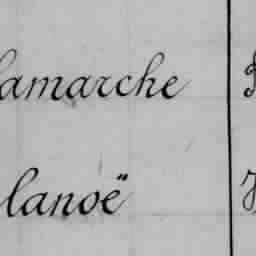 lamarche
lanoë